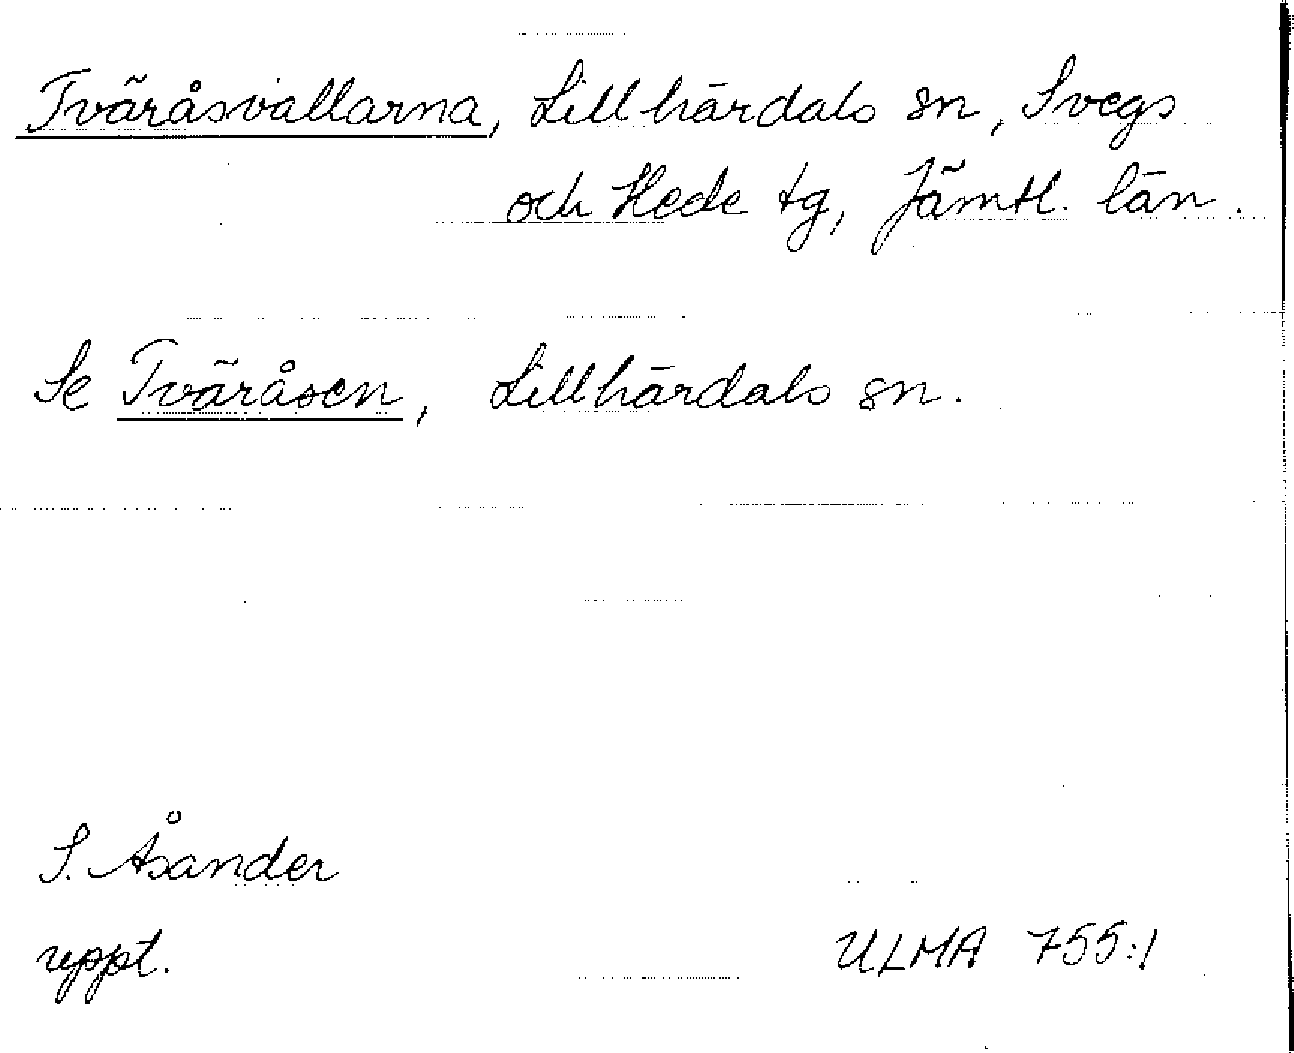 Tväråsvallarna, Lillhärdals sn, Svegs
och Hede tg, Jämtl. län.
Se Tväråsen, Lillhärdals sn.
S. Åsander
uppt.
ULMA 755:1